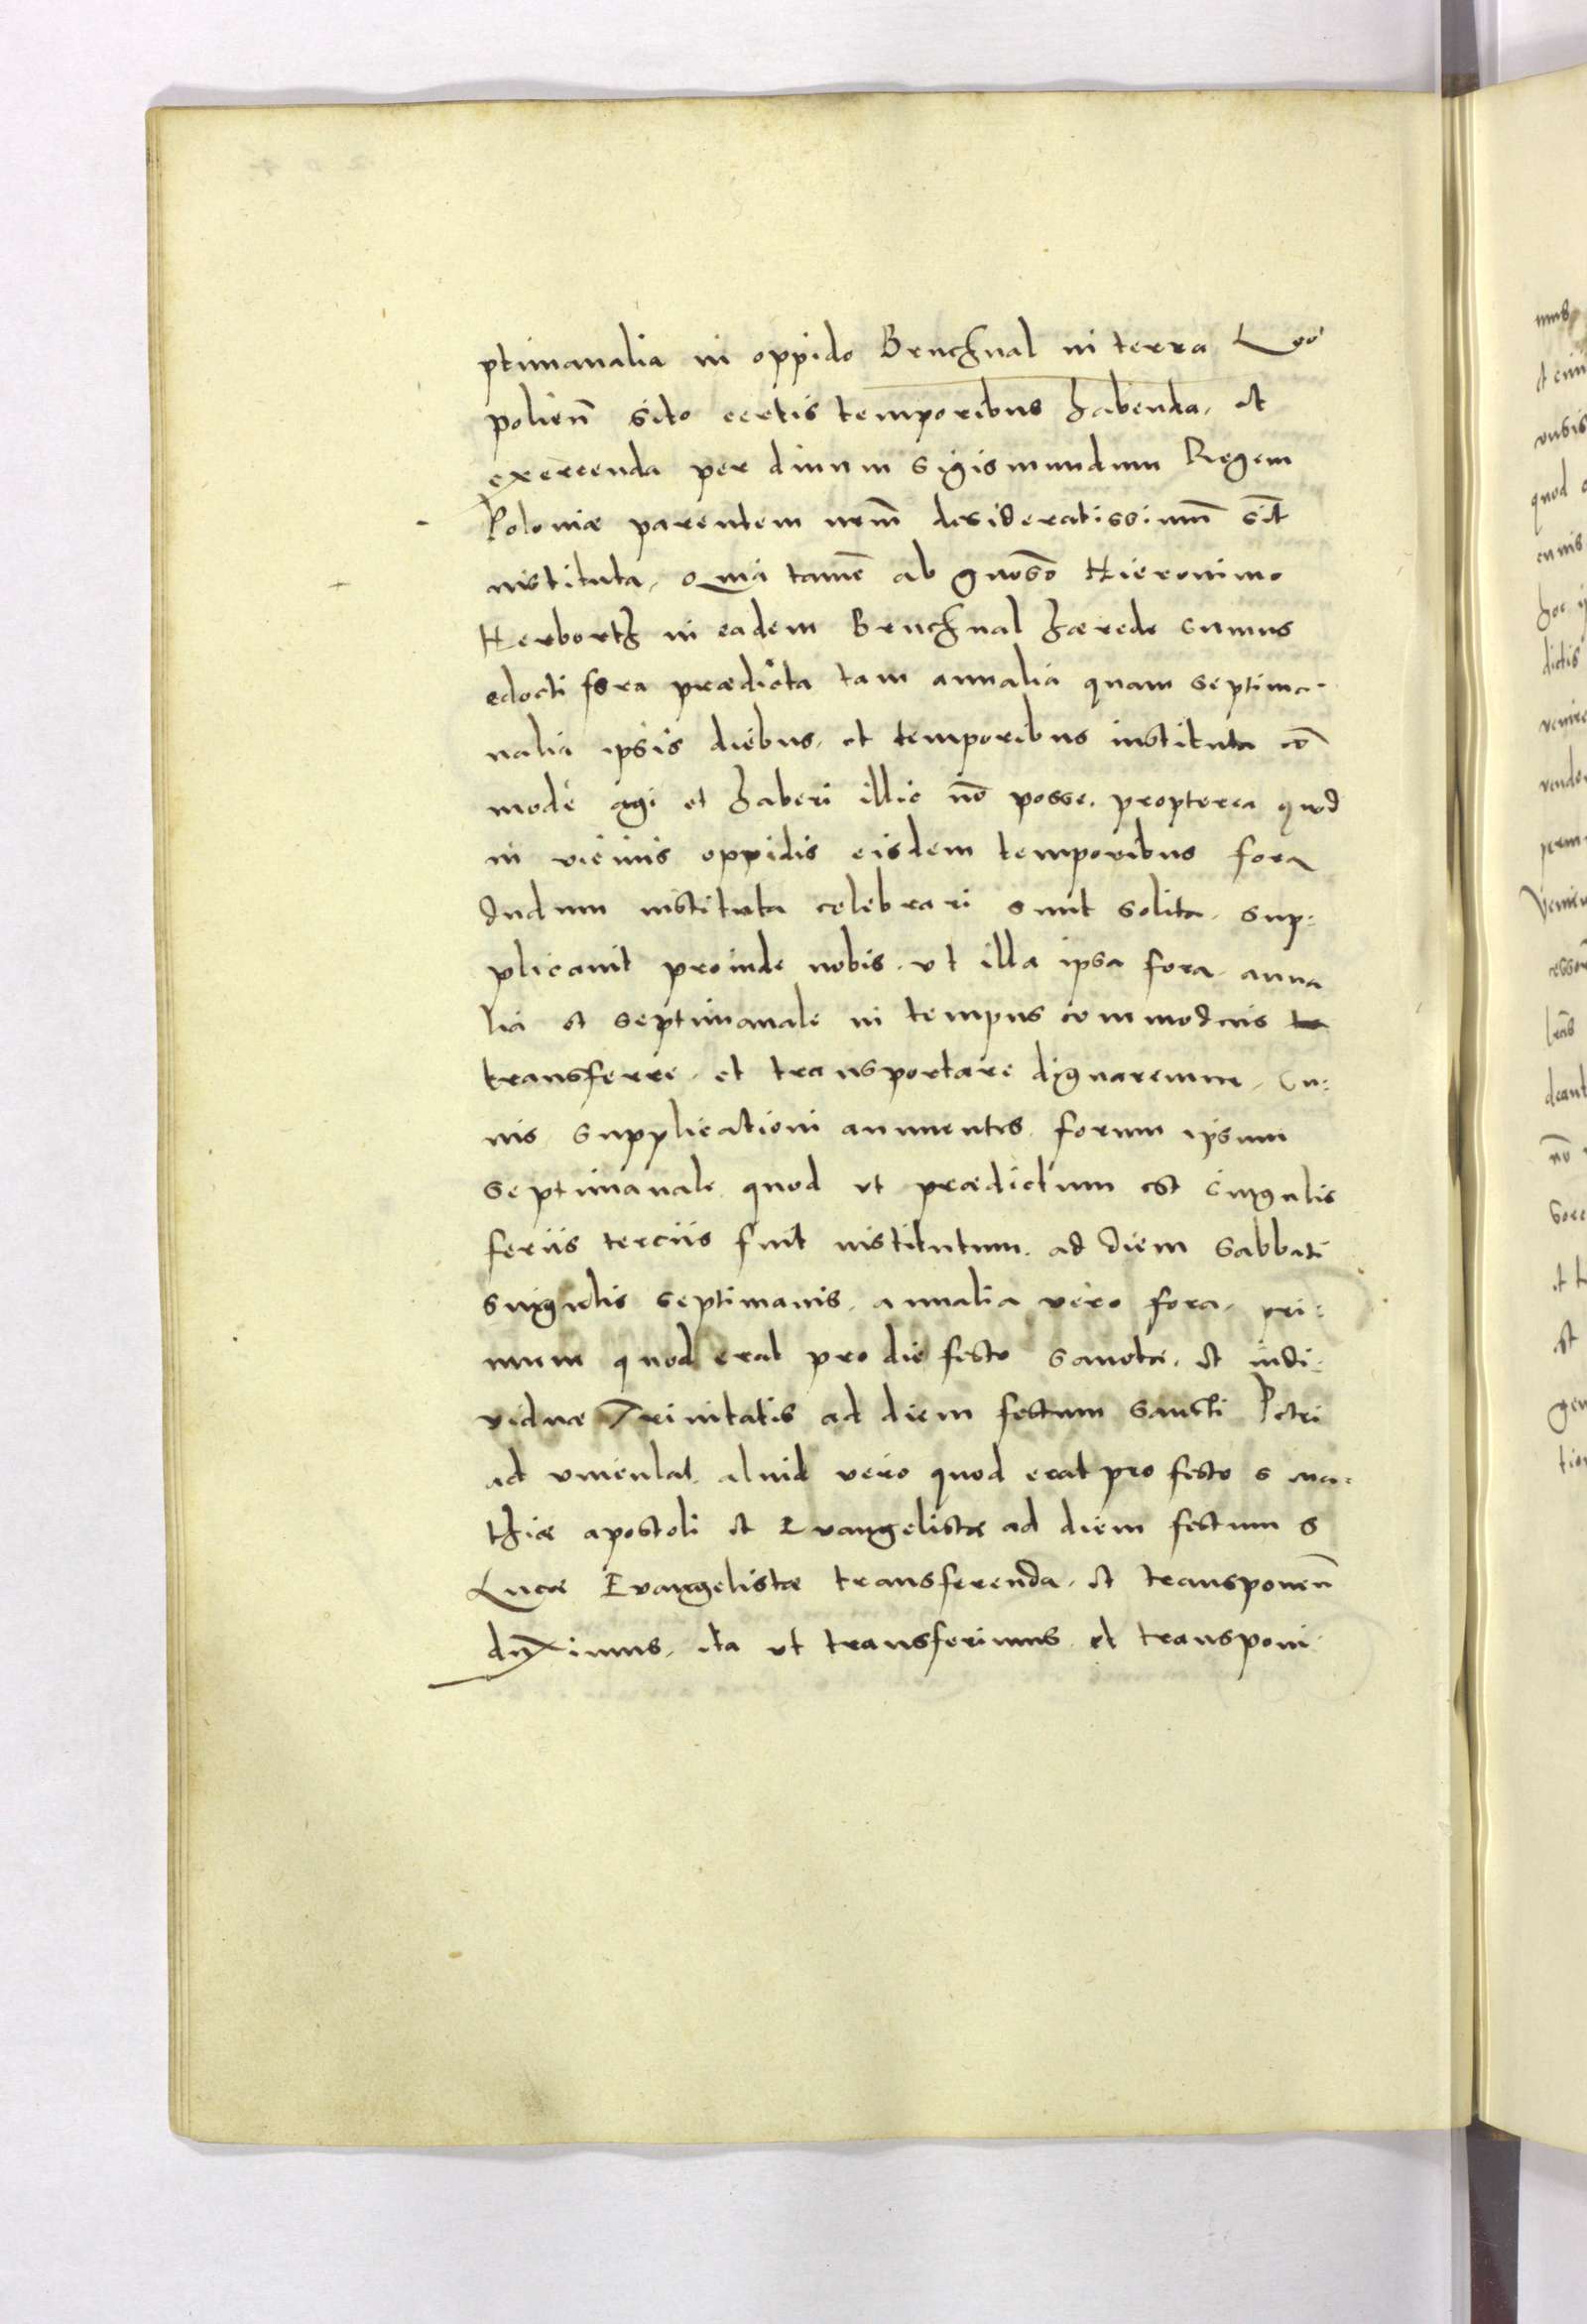 ptimanalia in oppido Bruchnal in terra Leo
polień sito certis temporibus habenda, et
exercenda per diuum Sigismundum Regem
Poloniæ parentem nrm̄ desideratissimū sīt
instituta, Quia tamē ab gnoso Hieronimo
Herborth in eadem Bruchnal hærede sumus
edocti fora prædicta tam annalia quam septima-
nalia ipsis diebus, et temporibus instituta cō
modè agi et haberi illic nō posse, propterea quod
in vicinis oppidis eisdem temporibus fora
dudum instituta celebrari sunt solita, sup:
plicauit proinde nobis, vt illa ipsa fora, anna
lia et septimanale in tempus commodius
transferre, et transportare dignaremur, Cu:
ius supplicationi annuentes, forum ipsum
septimanale quod vt prædictum est singulis
feriis terciis fuit institutum, ad diem Sabbati
singulis septimanis, annalia vero fora, pri:
mum quod erat pro die festo sanctæ, et indi:
viduæ Trinitatis ad diem festum Sancti Petri
ad vincula, aliud vero quod erat pro festo s Ma:
thiæ apostoli et Euangelistæ ad diem festum S
Lucæ Evangelistæ transferenda, et transponen̄
duximus, ita vt transferimus et transponi